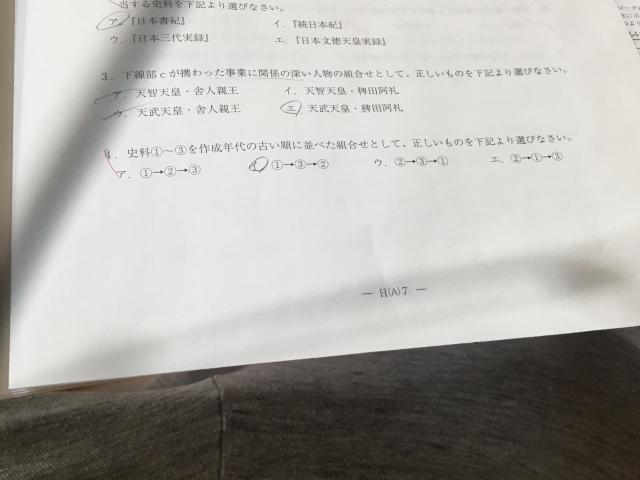 当する史料を下記より選びなさい。
ア．『日本書紀』 イ．『続日本紀』
ウ．『日本三代実録』 エ．『日本文徳天皇実録』
3．下線部cが携わった事業に関係の深い人物の組合せとして、正しいものを下記より選びなさい。
ア．天智天皇・舎人親王 イ．天智天皇・稗田阿礼
ウ．天武天皇・舎人親王 エ．天武天皇・稗田阿礼
4．史料①～③を作成年代の古い順に並べた組合せとして、正しいものを下記より選びなさい。
ア．①→②→③ イ．①→③→② ウ．②→③→① エ．②→①→③
― 日(A)7 ―